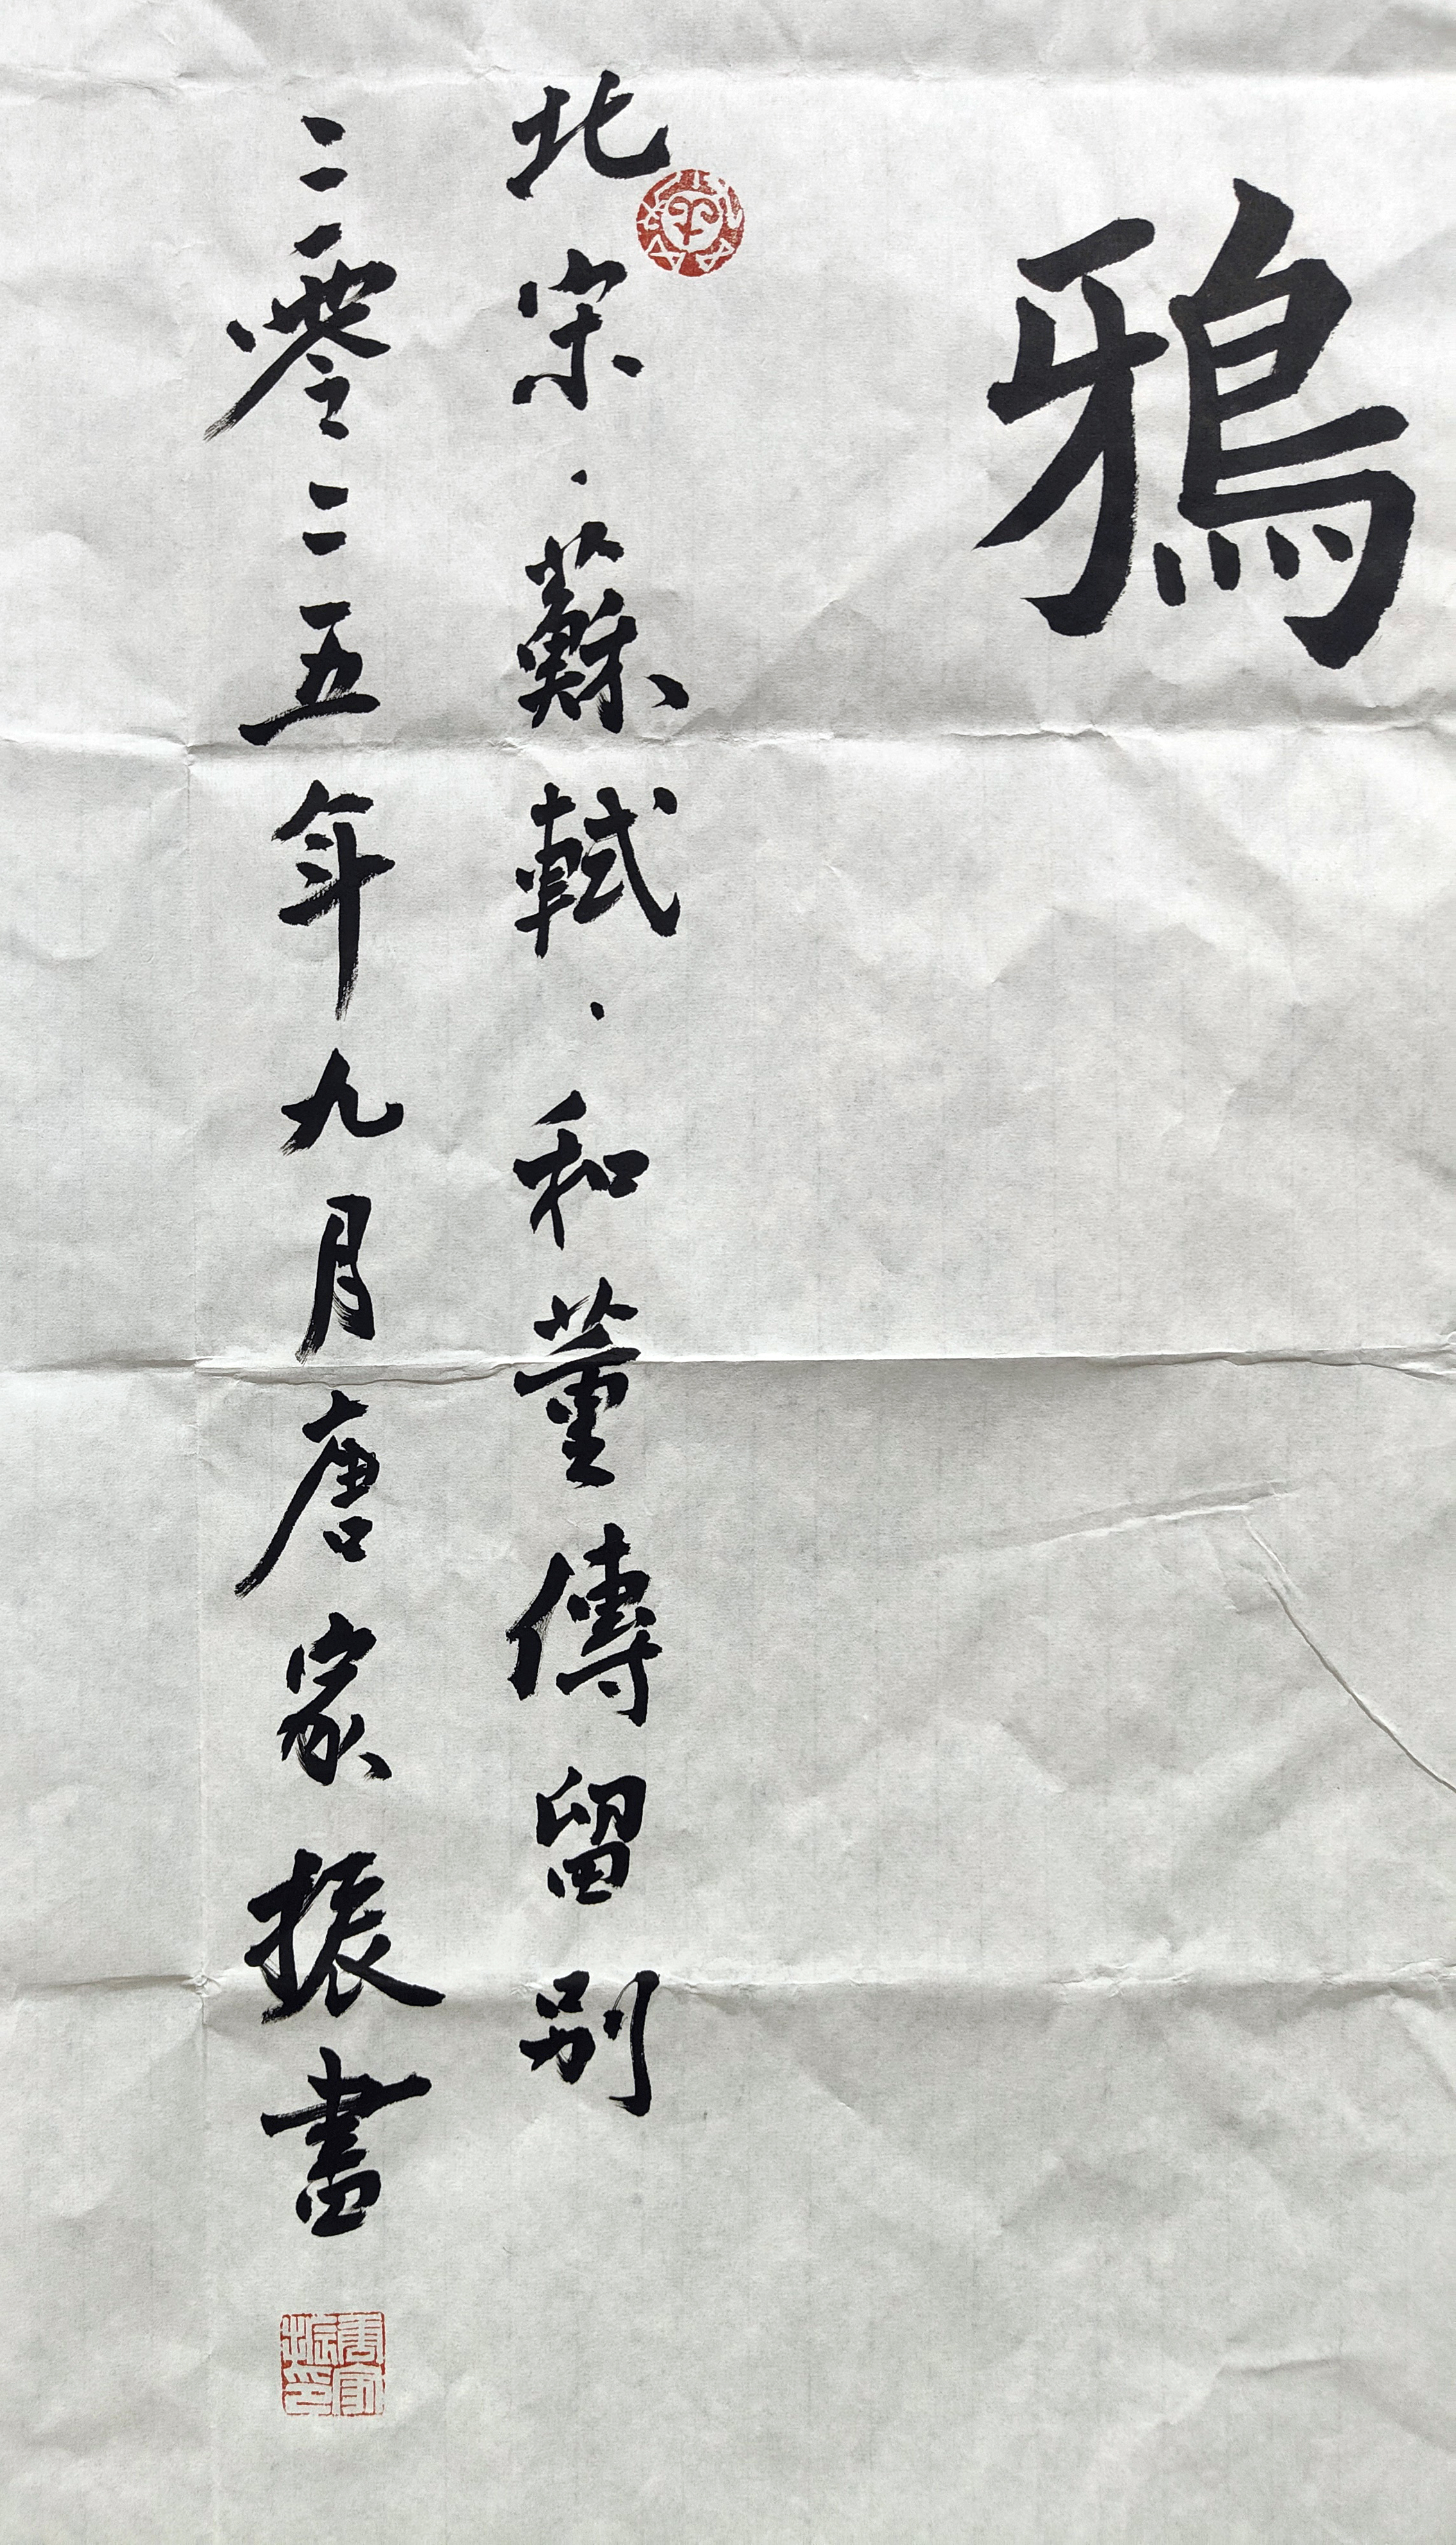 鴉
北宋·蘇軾·和董傳留别
二零二五年九月唐家振書
唐家振印